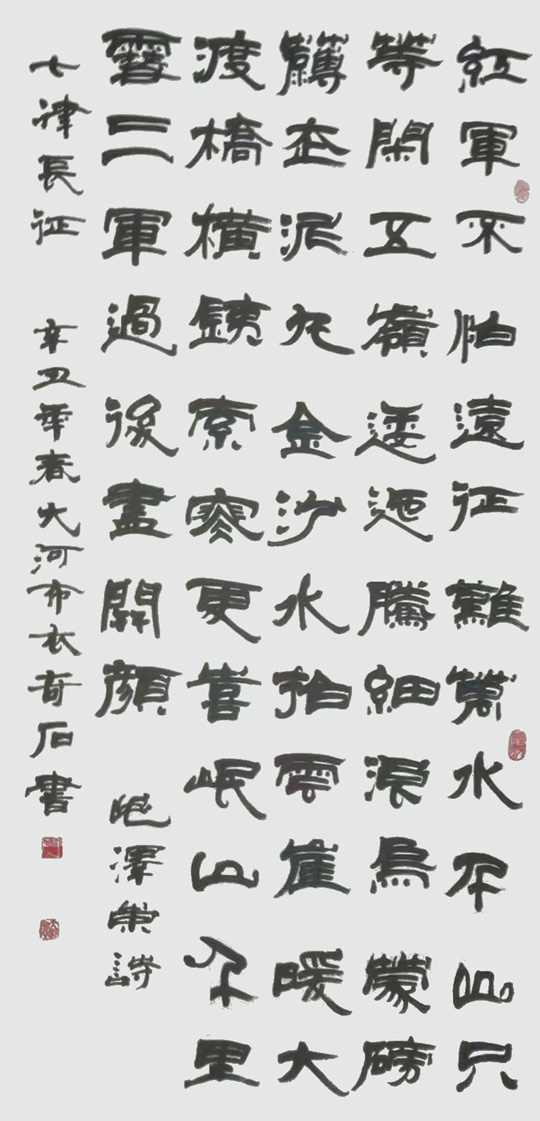 紅軍不怕遠征難萬水千山只
等閑五嶺逶迤騰細浪烏蒙磅
礴走泥丸金沙水拍雲崖暖大
渡橋橫鐵索寒更喜岷山千里
雪三軍過後盡開顏 毛澤東詩
七律長征 辛丑年春大河布衣奇石書